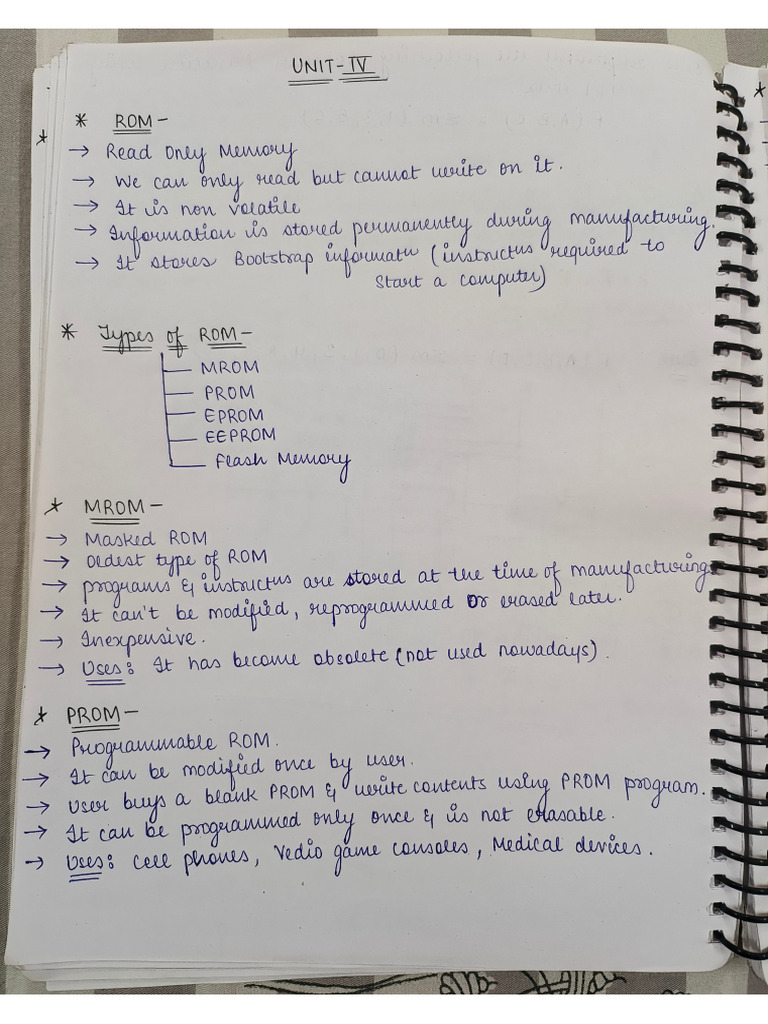 UNIT-IV
* ROM -
→ Read Only Memory
→ We can only read but cannot write on it.
→ It is non volatile
→ Information is stored permanently during manufacturing.
→ It stores Bootstrap informatn (instructns required to
start a computer)
* Types of ROM -
MROM
PROM
EPROM
EEPROM
Flash Memory
* MROM -
→ Masked ROM
→ Oldest type of ROM
→ programs & instructns are stored at the time of manufacturing
→ It can't be modified, reprogrammed or erased later.
→ Inexpensive.
→ Uses: It has become obsolete (not used nowadays).
* PROM -
→ Programmable ROM.
→ It can be modified once by user.
→ User buys a blank PROM & write contents using PROM program.
→ It can be programmed only once & is not erasable.
→ Uses: Cell phones, Vedio game consoles, Medical devices.